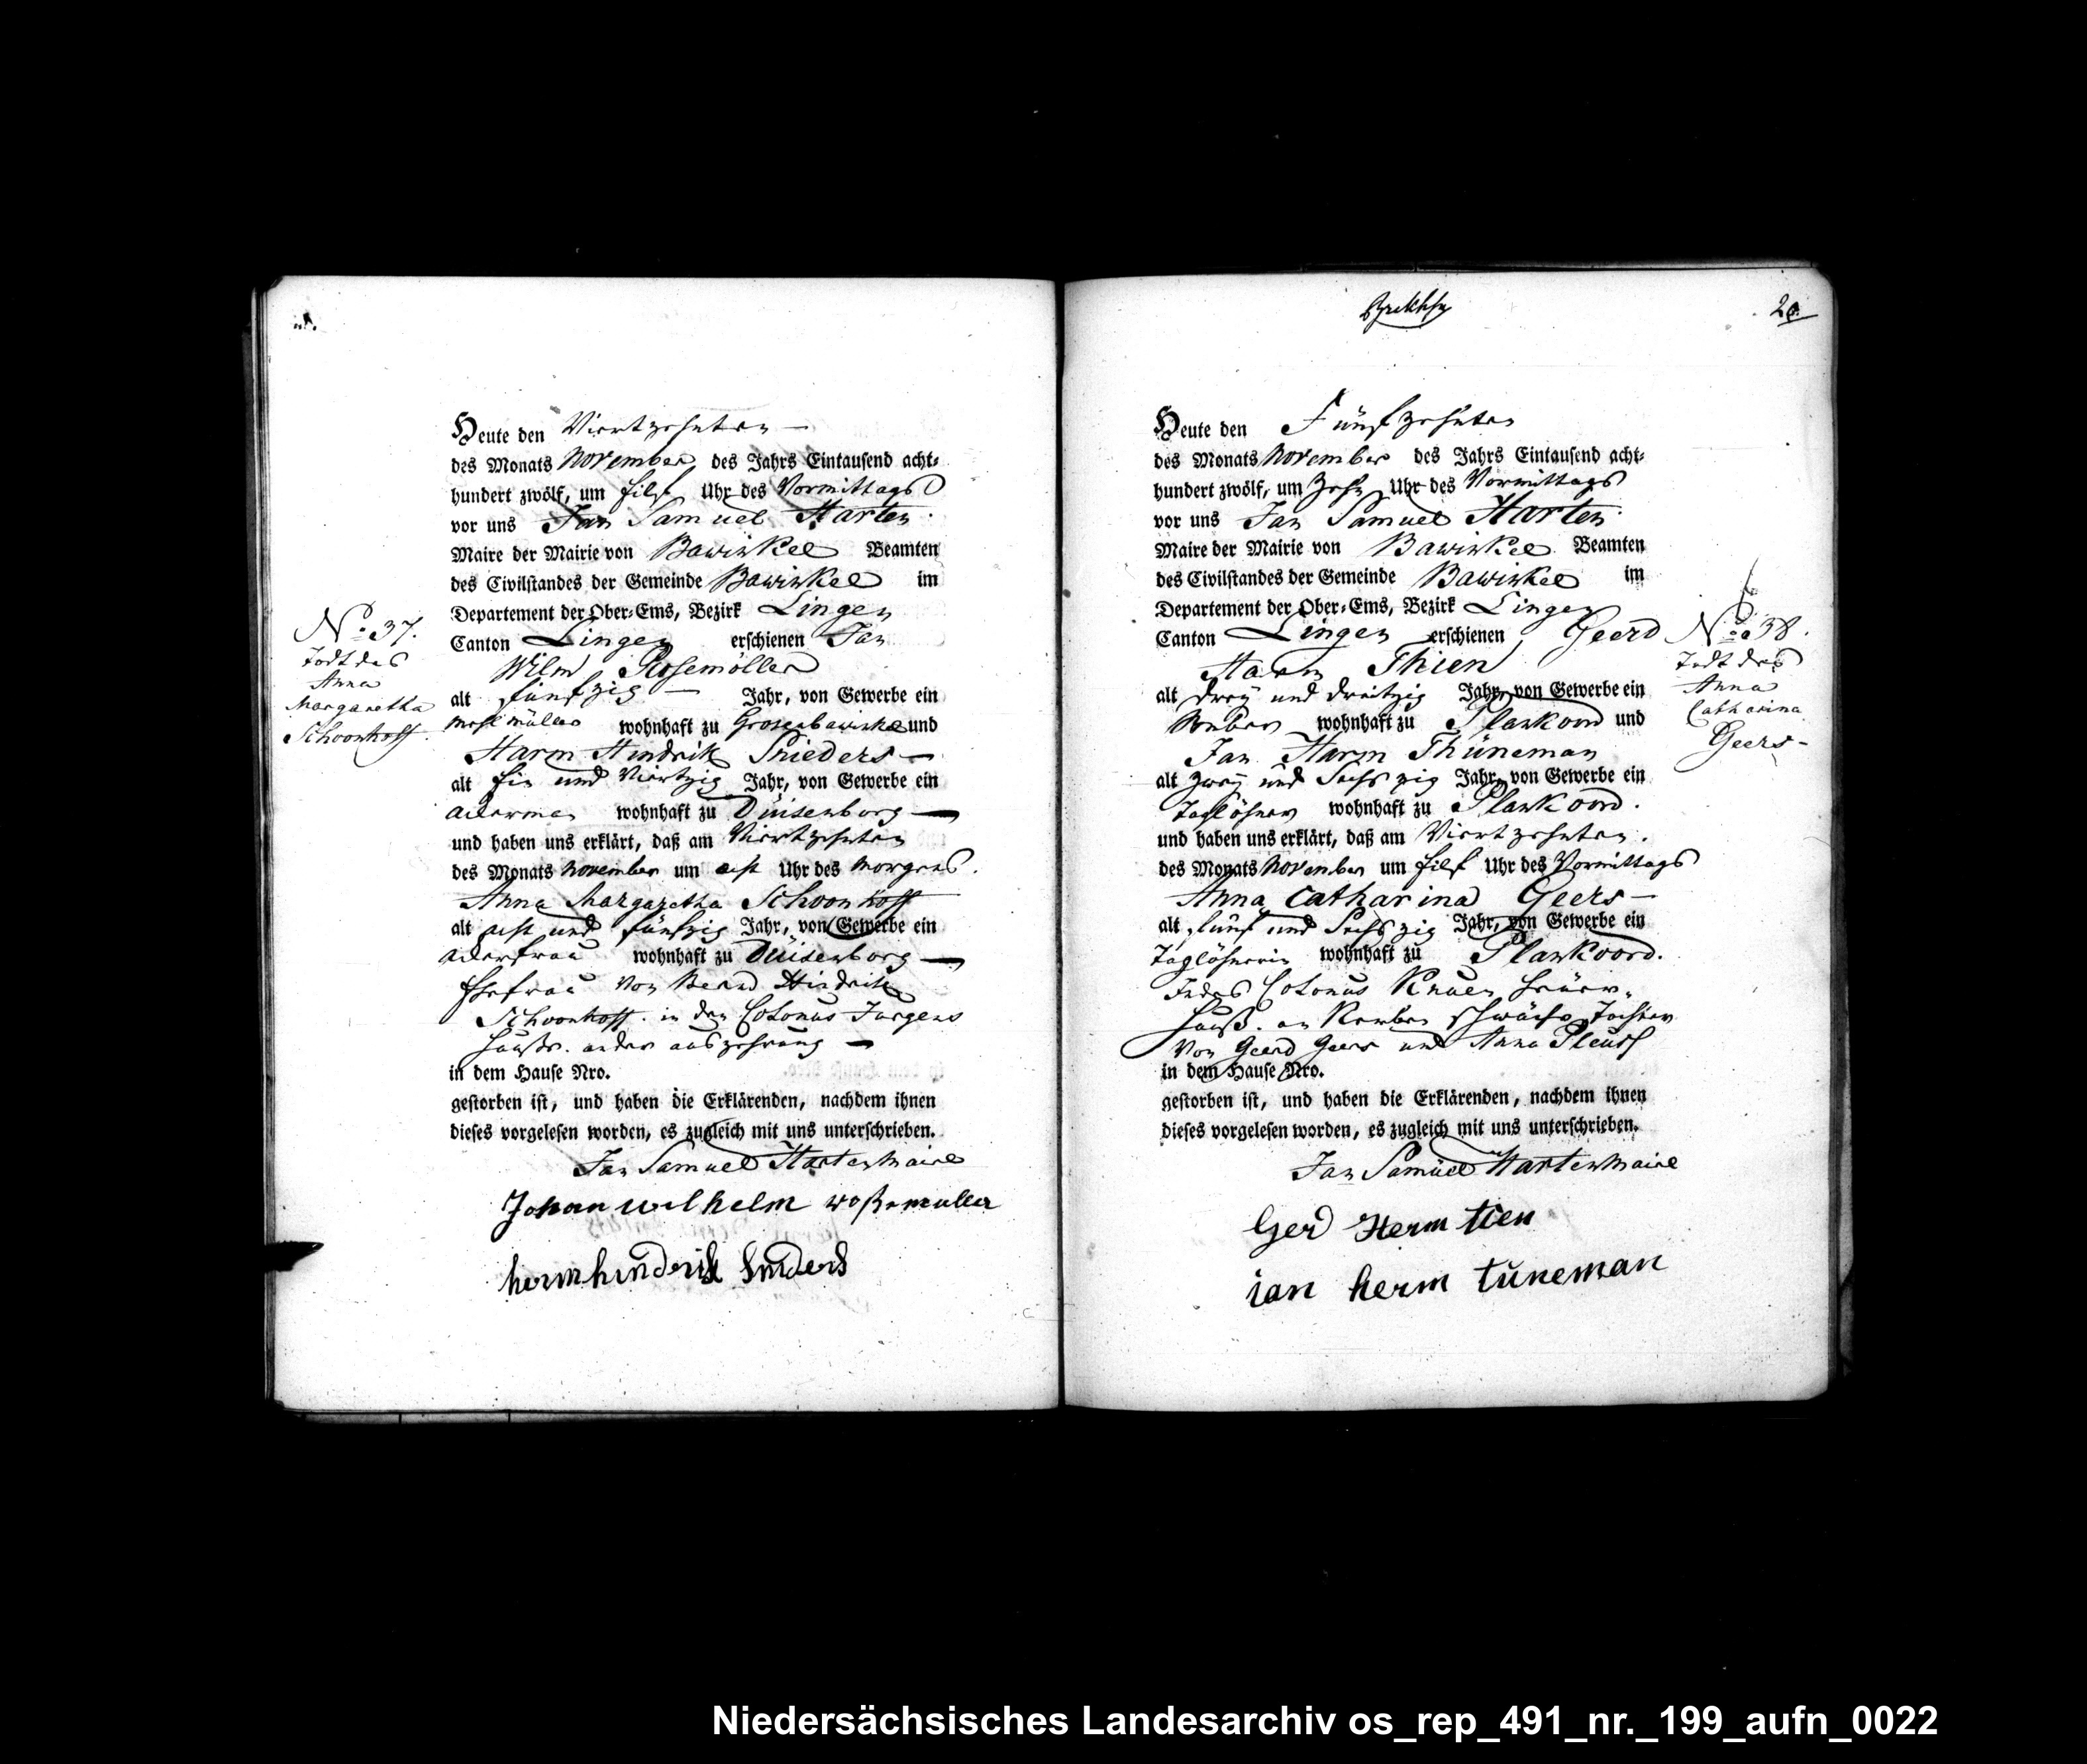 No. 37.
Todt des
Anna
Margaretha
Schoonhoff.
Heute den Viertzehnten —
des Monats November des Jahrs Eintausend acht-
hundert zwölf, um Eilf Uhr des Vormittags
vor uns Jan Samuel Harten
Maire der Mairie von Bawinkel Beamten
des Civilstandes der Gemeinde Bawinkel im
Departement der Ober-Ems, Bezirk Lingen
Canton Lingen erschienen Jan
Wilm Rosemöller
alt fünfzig — Jahr, von Gewerbe ein
müller wohnhaft zu Grosenbawinkel und
Harm Hindrik —
alt Ein und Viertzig Jahr, von Gewerbe ein
Ackerman wohnhaft zu Duisenborg —
und haben uns erklärt, daß am Viertzehnten
des Monats November um acht Uhr des Morgens.
Anna Margaretha Schoonhoff
alt acht und fünfzig Jahr, von Gewerbe ein
Ackerfrau wohnhaft zu Duisenborg —
Ehefrau von Bernd Hindrik
Schoonhoff. in den Colonus Jurgens
Hause. an der auszehrung —
in dem Hause Nro.
gestorben ist, und haben die Erklärenden, nachdem ihnen
dieses vorgelesen worden, es zugleich mit uns unterschrieben.
Jan Samuel Harten Maire
Johan wilhelm roßemuller
herm hindrik
20.
Heute den Fünfzehnten
des Monats November des Jahrs Eintausend acht-
hundert zwölf, um Zehn Uhr des Vormittags
vor uns Jan Samuel Harten
Maire der Mairie von Bawinkel Beamten
des Civilstandes der Gemeinde Bawinkel im
Departement der Ober-Ems, Bezirk Lingen
Canton Lingen erschienen Geerd
Harm Thien
alt drey und dreitzig Jahr, von Gewerbe ein
Weber wohnhaft zu Plankoord und
Jan Harm Thüneman
alt zwey und Sechszig Jahr, von Gewerbe ein
Taglöhner wohnhaft zu Plankoord.
und haben uns erklärt, daß am Viertzehnten.
des Monats November um Eilf Uhr des Vormittags
Anna Catharina Geers —
alt fünf und Sechszig Jahr, von Gewerbe ein
Taglöhnerin wohnhaft zu Plankoord.
In des Colonus Knuen Heuer-
Hauß. an schwäche Tochter
Von Geerd Geers und Anna
in dem Hause Nro.
gestorben ist, und haben die Erklärenden, nachdem ihnen
dieses vorgelesen worden, es zugleich mit uns unterschrieben.
Jan Samüel Harten Maire
Gerd Herm tien
ian herm tüneman
No. 38.
Todt des
Anna
Catharina
Geers —
Niedersächsisches Landesarchiv os_rep_491_nr._199_aufn_0022